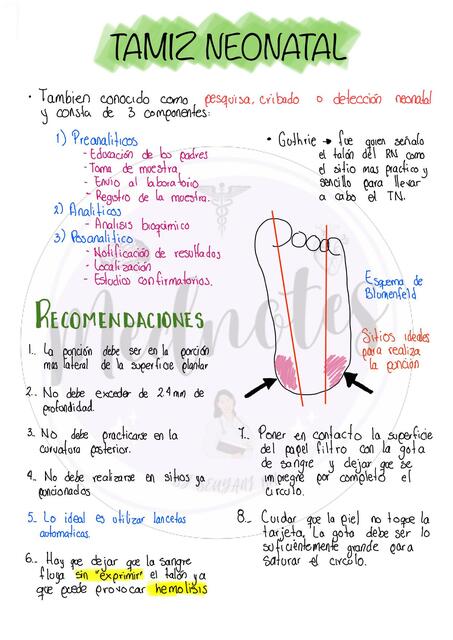 TAMIZ NEONATAL
• Tambien conocido como pesquisa, cribado o detección neonatal
y consta de 3 componentes:
1) Preanaliticos
- Educación de los padres
- Toma de muestra
- Envio al laboratorio
- Registro de la muestra.
2) Analiticos
- Analisis bioquimico
3) Posanalitico
- Notificación de resultados
- Localización
- Estudios confirmatorios.
• Guthrie → fue quien señalo
el talón del RN como
el sitio mas practico y
sencillo para llevar
a cabo el TN.
Esquema de
Blumenfeld
Sitios ideales
para realiza
la punción
RECOMENDACIONES
1.. La punción debe ser en la porción
mas lateral de la superficie plantar
2.. No debe exceder de 2.4 mm de
profundidad.
3. No debe practicarse en la
curvatura posterior.
4.. No debe realizarse en sitios ya
puncionados
5.. Lo ideal es utilizar lancetas
automaticas.
6.. Hay que dejar que la sangre
fluya sin "exprimir" el talón ya
que puede provocar hemolisis
7.. Poner en contacto la superficie
del papel filtro con la gota
de sangre y dejar que se
impregne por completo el
circulo.
8.. Cuidar que la piel no toque la
tarjeta, La gota debe ser lo
suficientemente grande para
saturar el circulo.
Mednotes